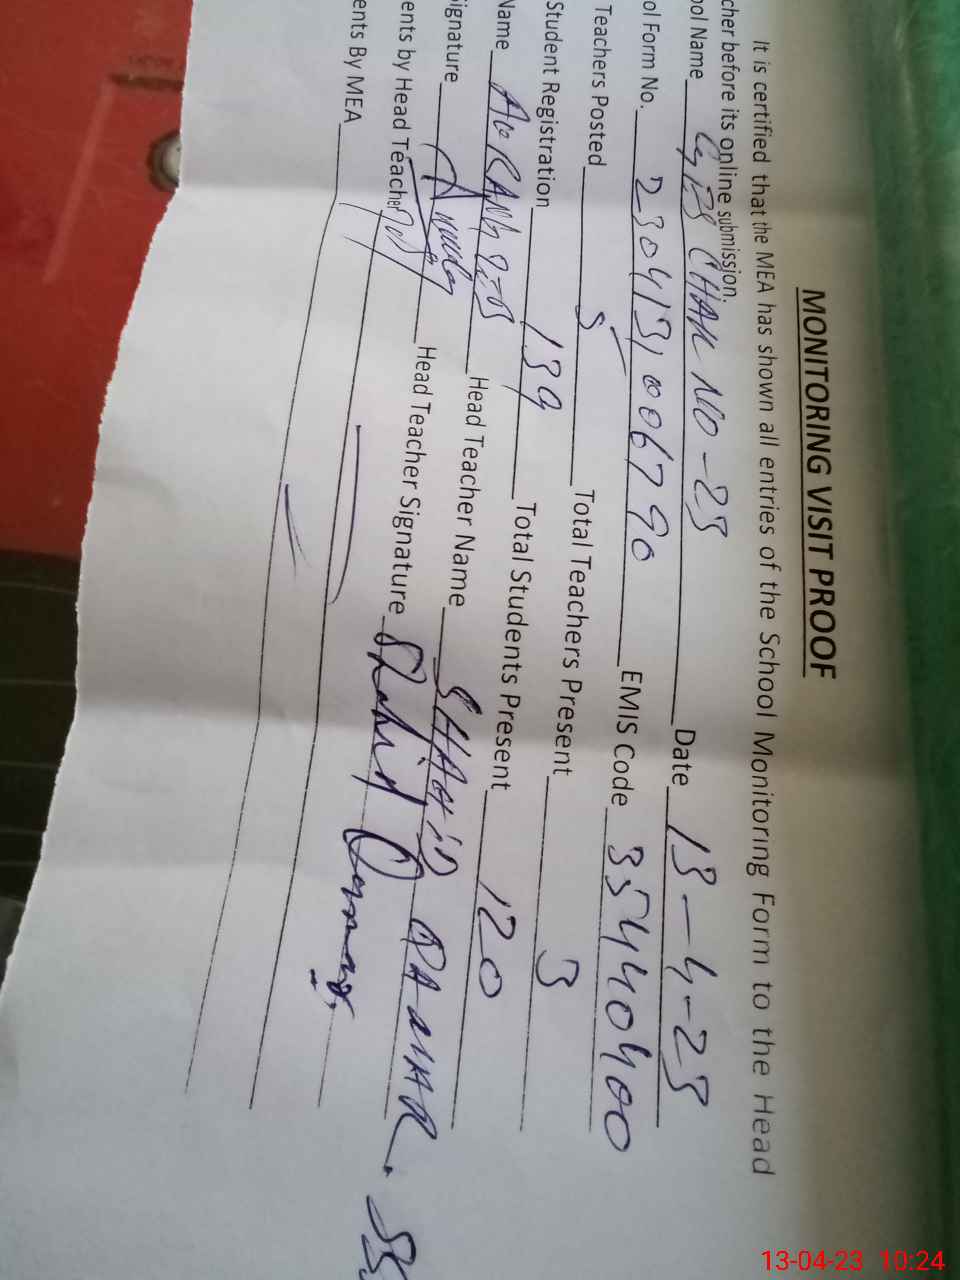 MONITORING VISIT PROOF
It is certified that the MEA has shown all entries of the School Monitoring Form to the Head
cher before its online submission.
ool Name CHAK NO - 25 Date 13-4-23
ol Form No. 230413,006790 EMIS Code 35440400
Teachers Posted 5 Total Teachers Present 3
Student Registration 139 Total Students Present 120
Name AURANGZEB Head Teacher Name SHAHID QAMAR. SS
ignature Head Teacher Signature Shahid Qamar
ents by Head Teacher
ents By MEA
13-04-23 10:24